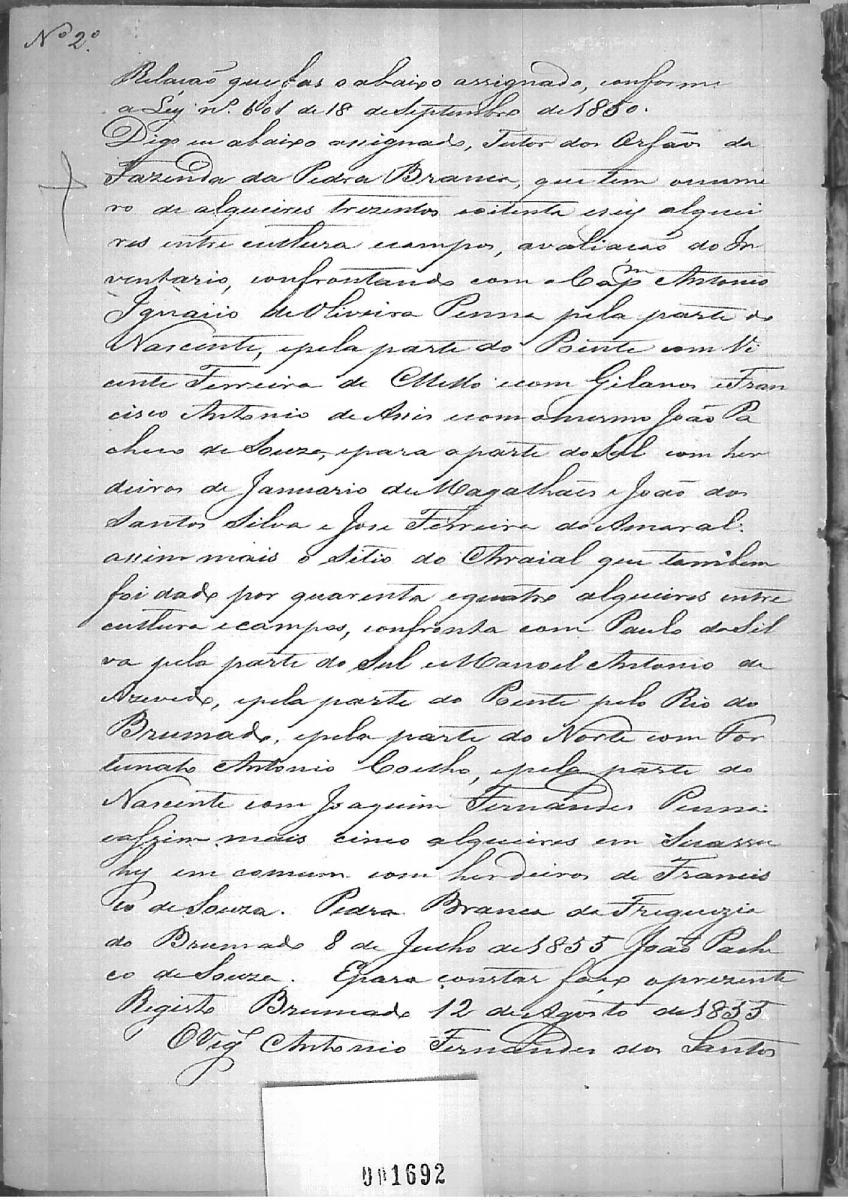 Nº 2º
Relação que fas o abaixo assignado, conforme
a Ley nº. 601 de 18 de Septembro de 1850.
Digo eu abaixo assignado, Tutor dos Orfãos da
Fazenda da Pedra Branca, que tem onume
ro de alqueires trezentos eoitenta eseis alquei
res entre cultura ecampos, avaliacão do In
ventario, confrontando com o Capm Antonio
Ignacio de Oliveira Penna pela parte do
Nascente, epela parte do Puente com Vi
cente Ferreira de Mello ecom Gilanos e Fran
cisco Antonio de Assis ecom omesmo João Pa
checo de Souza, epara aparte do Sul com her
deiros de Januario de Magalhães e João dos
Santos Silva e Jose Ferreira do Amaral.
assim mais o Sitio do Arraial que tambem
foi dado por quarenta equatro alqueires entre
cultura ecampos, confronta com Paulo da Sil
va pela parte do Sul e Manoel Antonio de
Azevedo, epela parte do Puente pelo Rio do
Brumado, epela parte do Norte com For
tunato Antonio Coelho, epela parte do
Nascente com Joaquim Fernandes Penna.
eassim mais cinco alqueires em Suassu
hy em comum com herdeiros de Francis
co de Souza. Pedra Branca da Freguezia
do Brumado 8 de Julho de 1855 João Pache
co de Souza. Epara constar faço oprezente
Registo Brumado 12 de Agosto de 1855
OVigº Antonio Fernandes dos Santos
001692